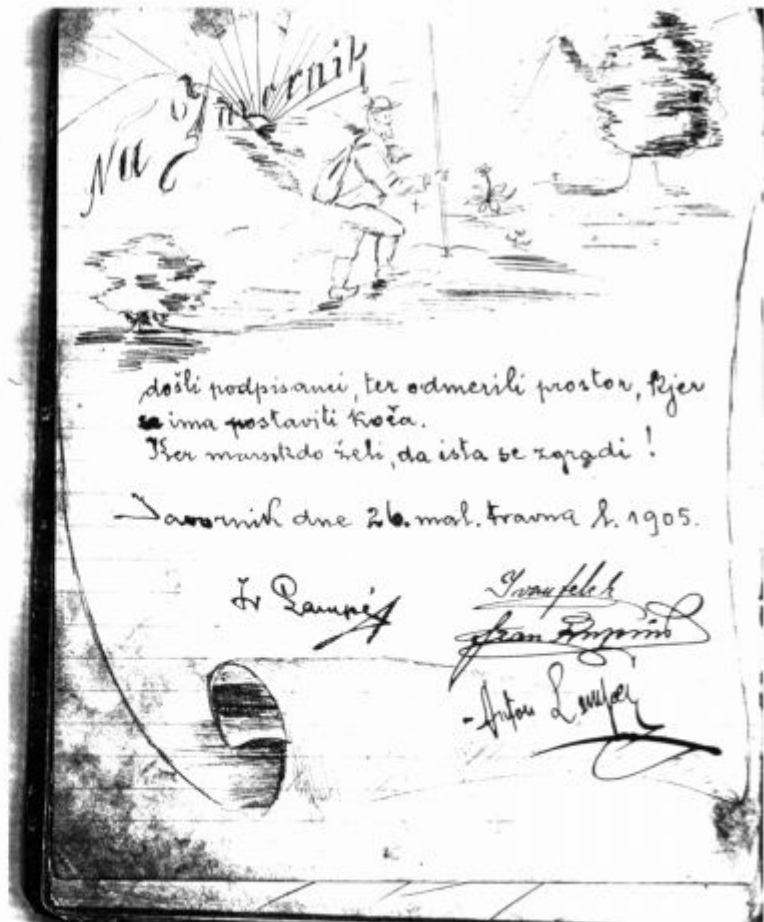 Na Javornik
došli podpisanci, ter odmerili prostor, kjer
se ima postaviti koča.
Ker marsikdo želi, da ista se zgradi!
Javornik dne 26. mal. travna l. 1905.
Anton